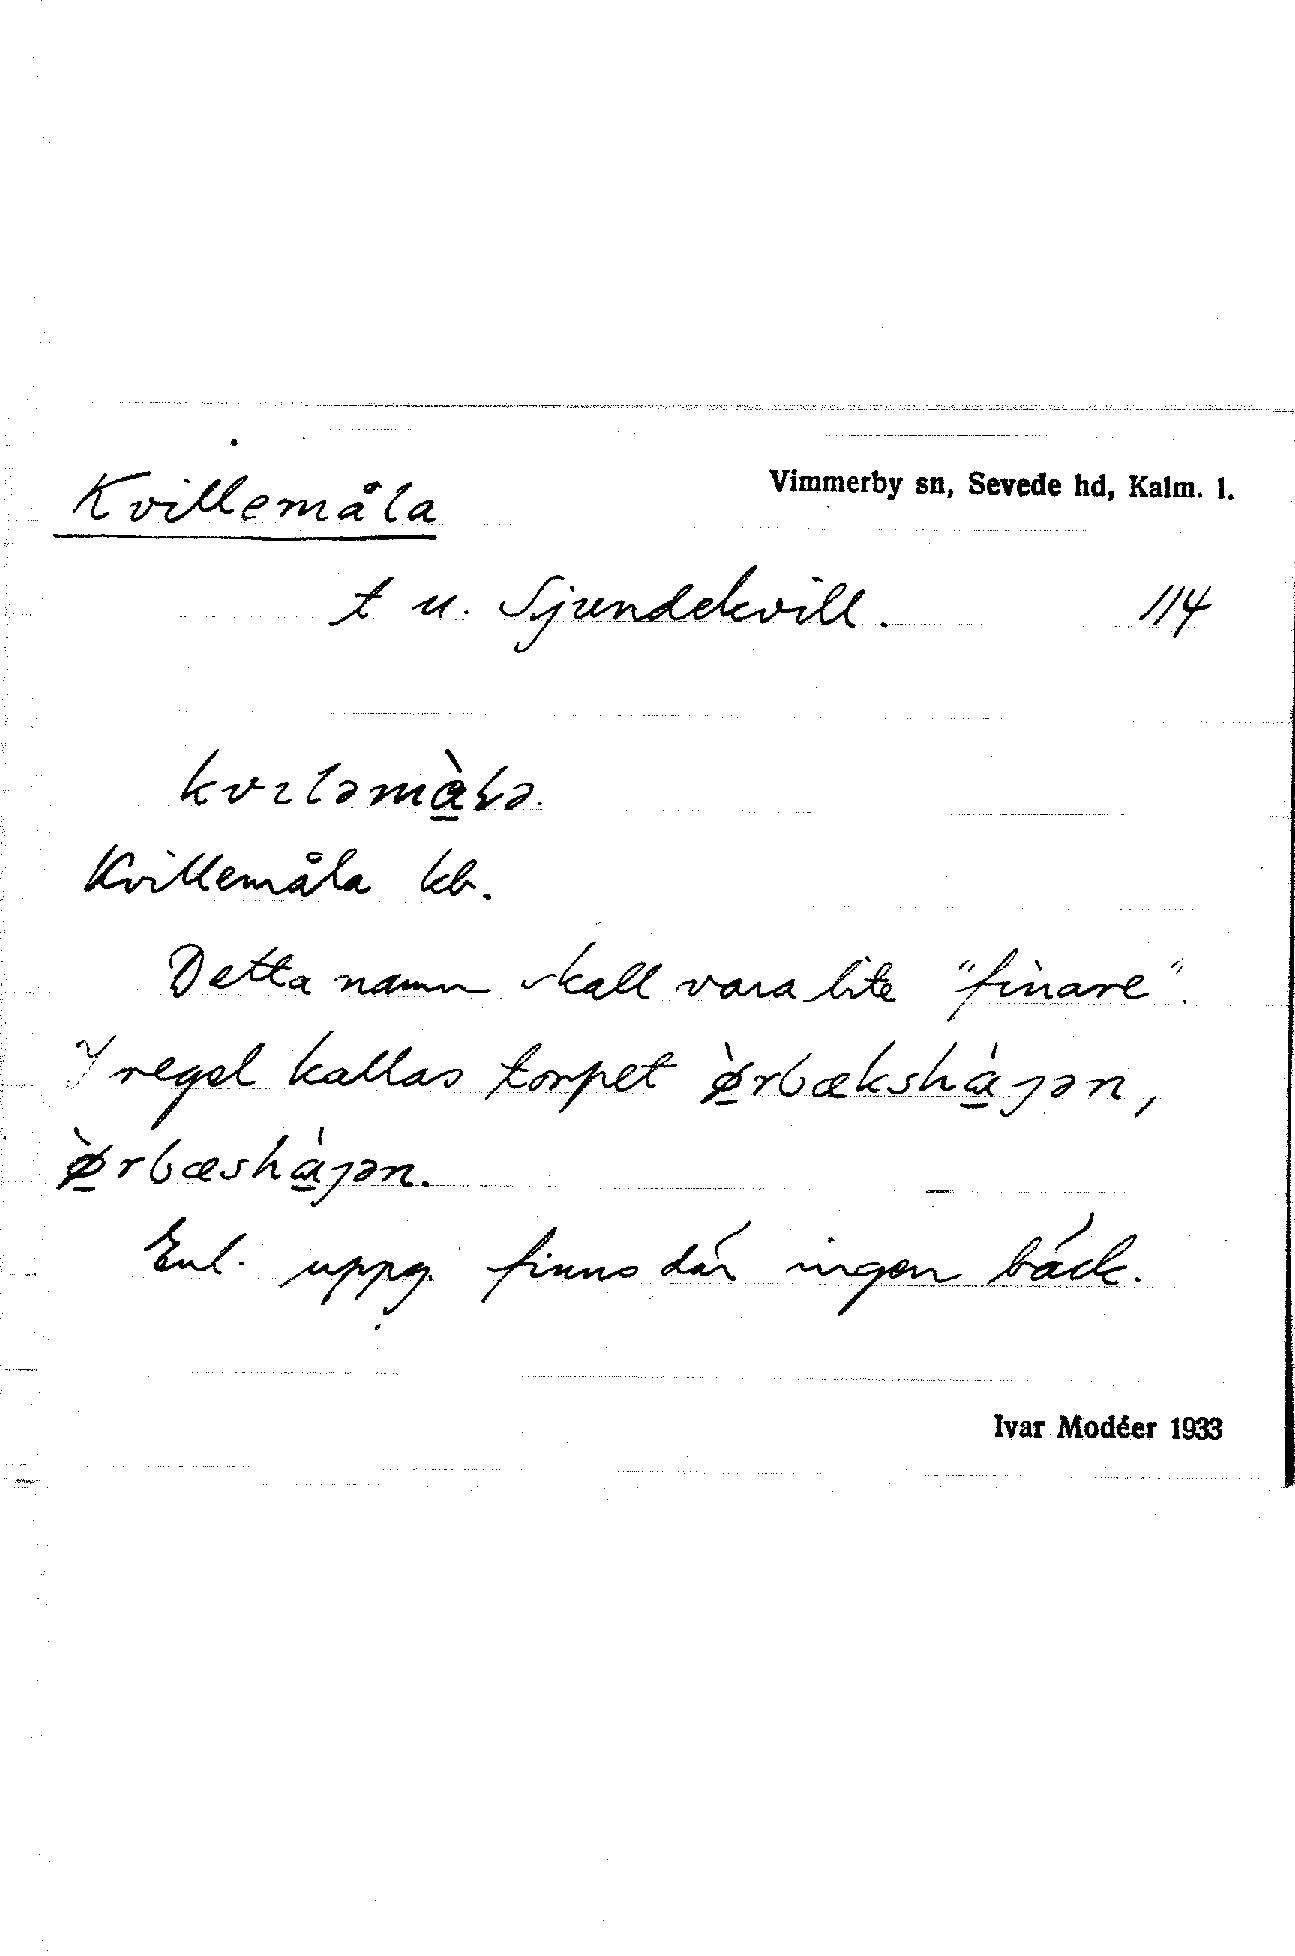 Kvillemåla
Vimmerby sn, Sevede hd, Kalm. l.
t u. Sjundekvill. 114
kvıləmàⱡa.
Kvillemåla kb.
Detta namn skall vara lite "finare".
I regel kallas torpet ø̀rbækshájən,
ø̀rbæshájən.
Enl. uppg. finns där ingen bäck.
Ivar Modéer 1933